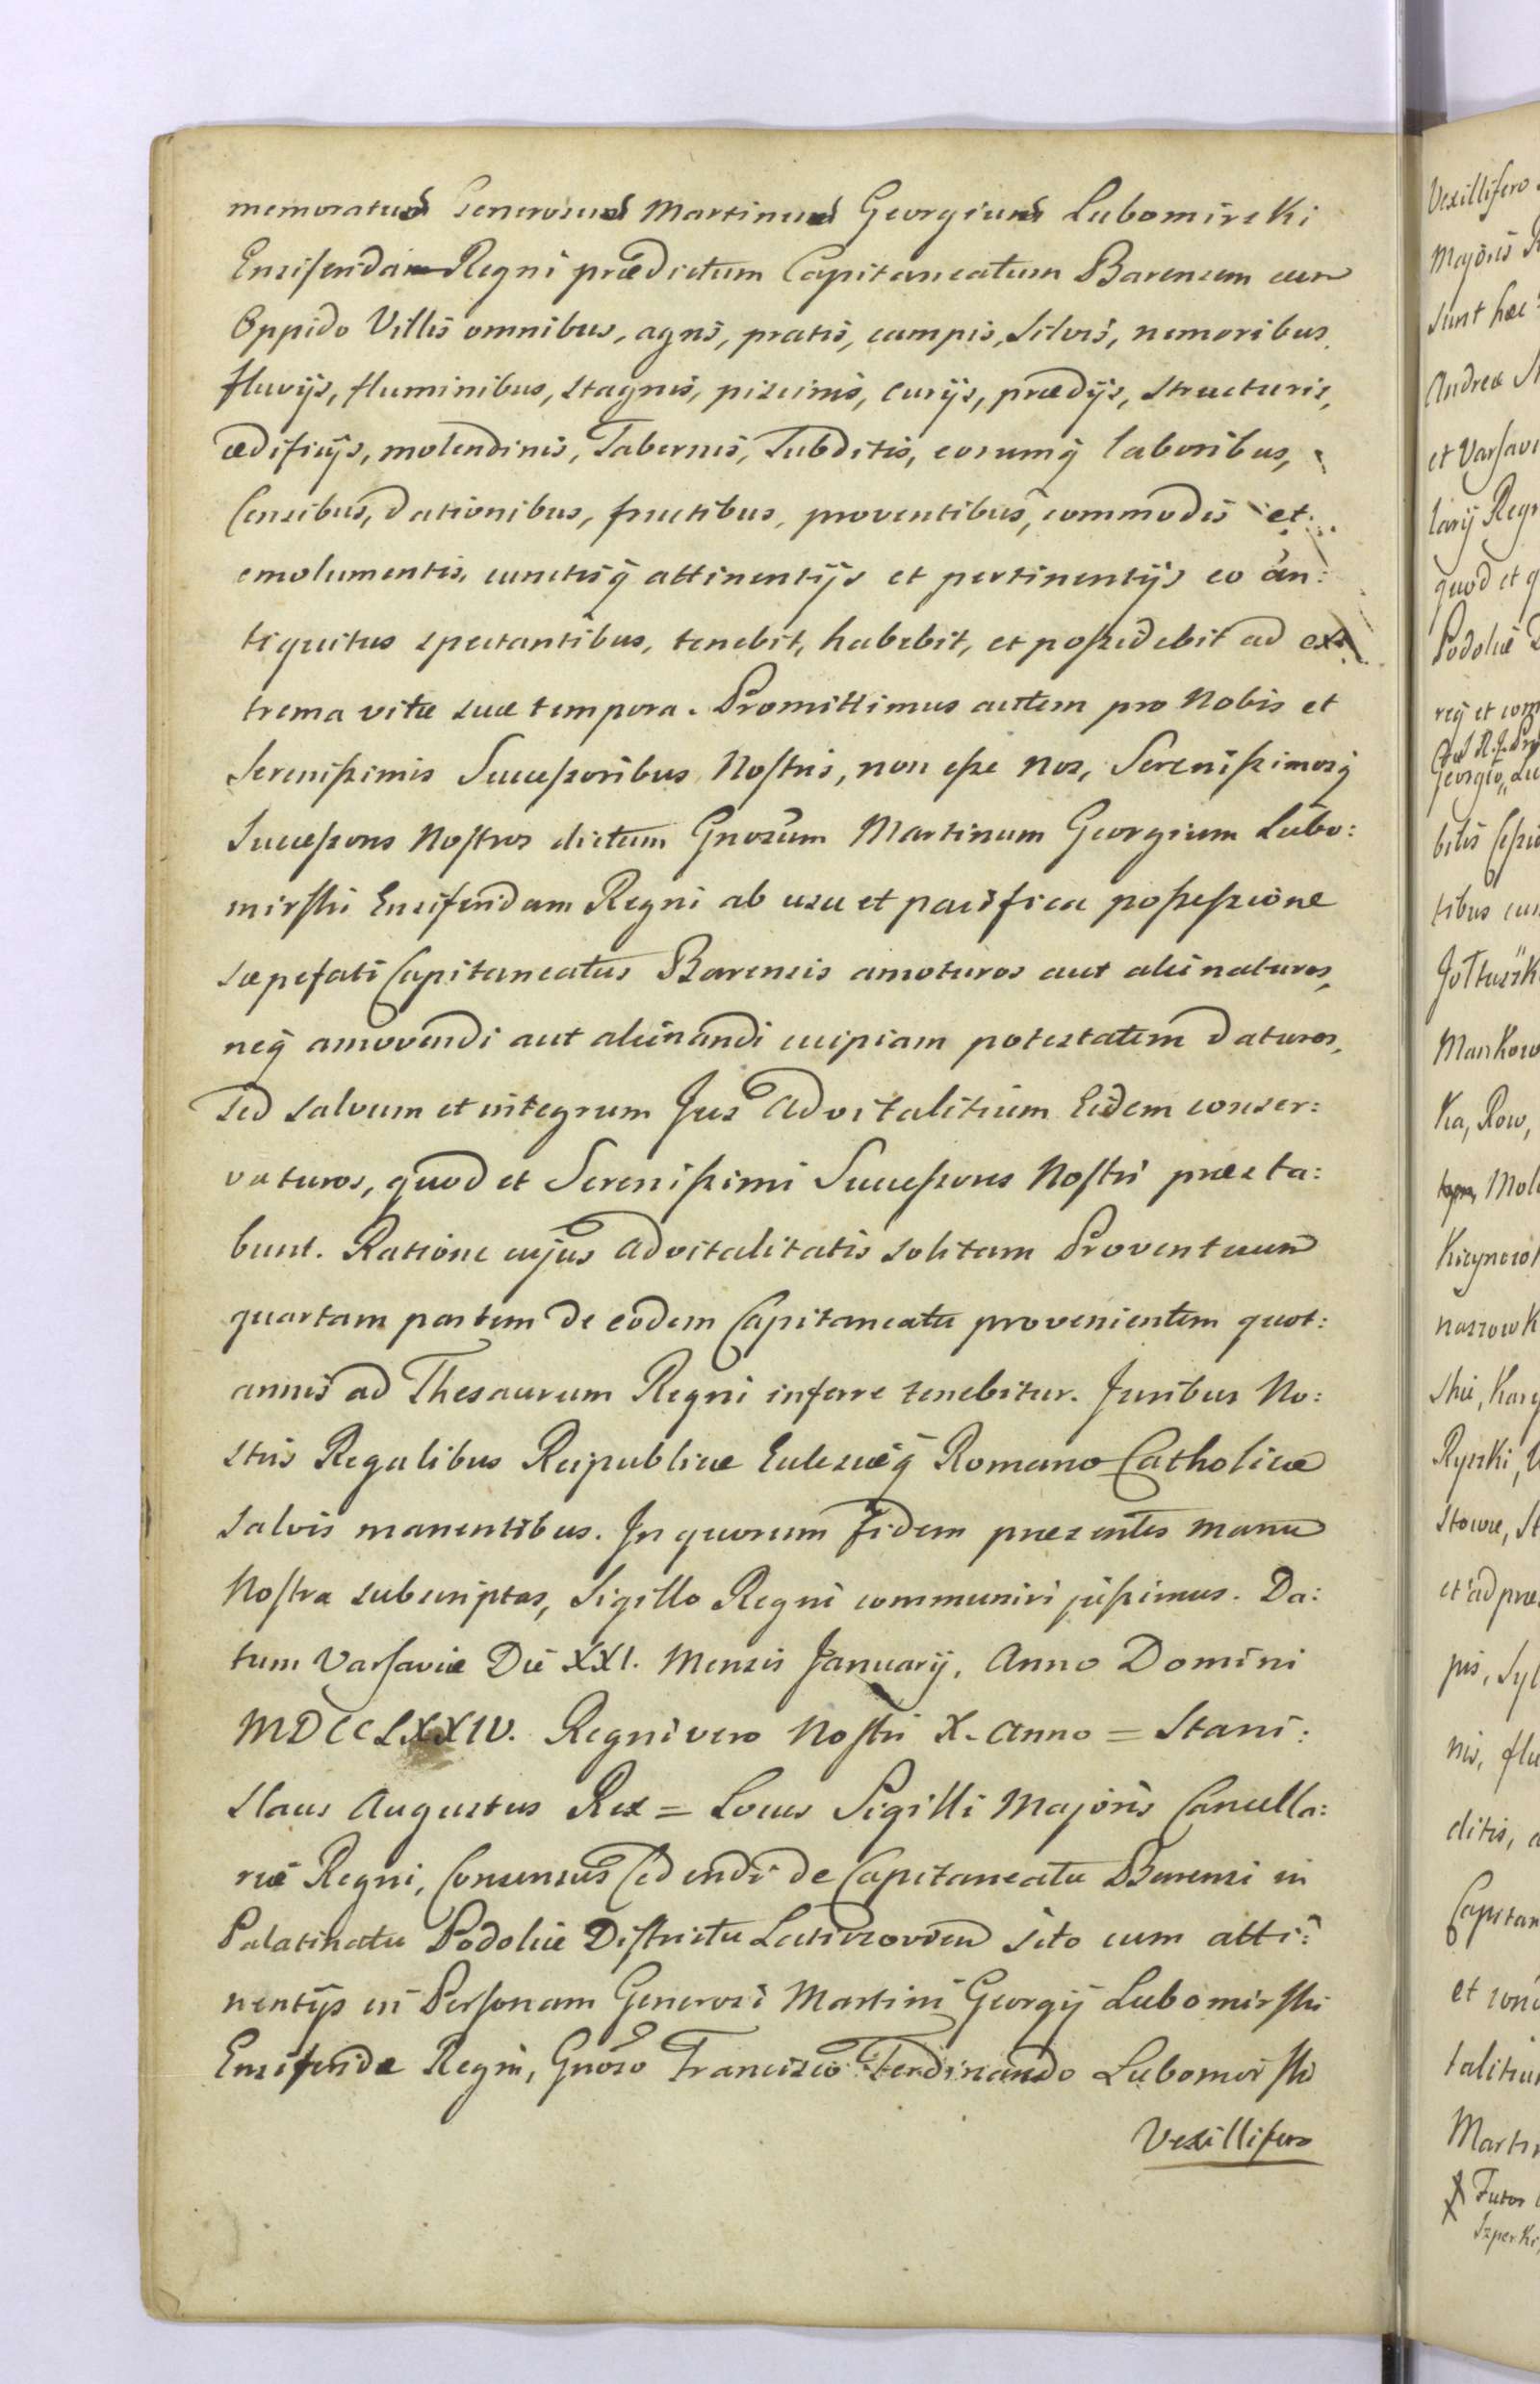 memoratus Generosus Martinus Georgius Lubomirski
Ensiferidam Regni prædictum Capitaneatum Barensem cum
Oppido Villis omnibus, agris, pratis, campis, Silvis, nemoribus,
fluvijs, fluminibus, stagnis, piscinis, curijs, prædijs, structuris,
ædificijs, molendinis, Tabernis, Subditis, eorumq laboribus,
Censibus, dationibus, fructibus, proventibus, commodis et
emolumentis, cunctisq attinentijs et pertinentijs eo an:
tiquitus spectantibus, tenebit, habebit, et possidebit ad ex:
trema vitæ suæ tempora. Promittimus autem pro Nobis et
Serenissimis Successoribus Nostris, non esse Nos, Serenissimosq
Successores Nostros dictum Gnosum Martinum Georgium Lubo:
mirski Ensiferidam Regni ab usu et pacifica possessione
sæpefati Capitaneatus Barensis amoturos aut alienaturos,
neq amovendi aut alienandi cuipiam potestatem daturos,
sed salvum et integrum Jus advitalitium Eidem conser:
vaturos, quod et Serenissimi Successores Nostri præsta:
bunt. Ratione cujus advitalitatis solitam Proventuum
quartam partem de eodem Capitaneatu provenientem quot:
annis ad Thesaurum Regni inferre tenebitur. Juribus No:
stris Regalibus Reipublicæ Eclesiæq Romano Catholicæ
Salvis manentibus. In quorum fidem præsentes manu
Nostra subscriptas, Sigillo Regni communiri jussimus. Da:
tum Varsaviæ Die XXI. Mensis Januarij, Anno Domini
MDCCLXXIV. Regni vero Nostri X. Anno = Stani:
slaus Augustus Rex = Locus Sigilli Majoris Cancella:
riæ Regni, Consensus Cedendi de Capitaneatu Barensi in
Palatinatu Podoliæ Districtu Laticzovien sito cum atti:
nentijs in Personam Generosi Martini Georgij Lubomirski
Ensiferidæ Regni, Gnoso Francisco Ferdinando Lubomirski
Vexillifero
Vexillifero
Majoris
Sunt hæc
Andreæ
et Varsavi
larij Regn
quod et q
Podoliæ
rej et com
Georgio
bilis
tibus cum
Mankow
Ka, Row,
Mol
naszowk
et ad præ
pis, Syl
nis, flu
ditis, a
Capitan
et
talitiu
Marti
Futor
Szperki,